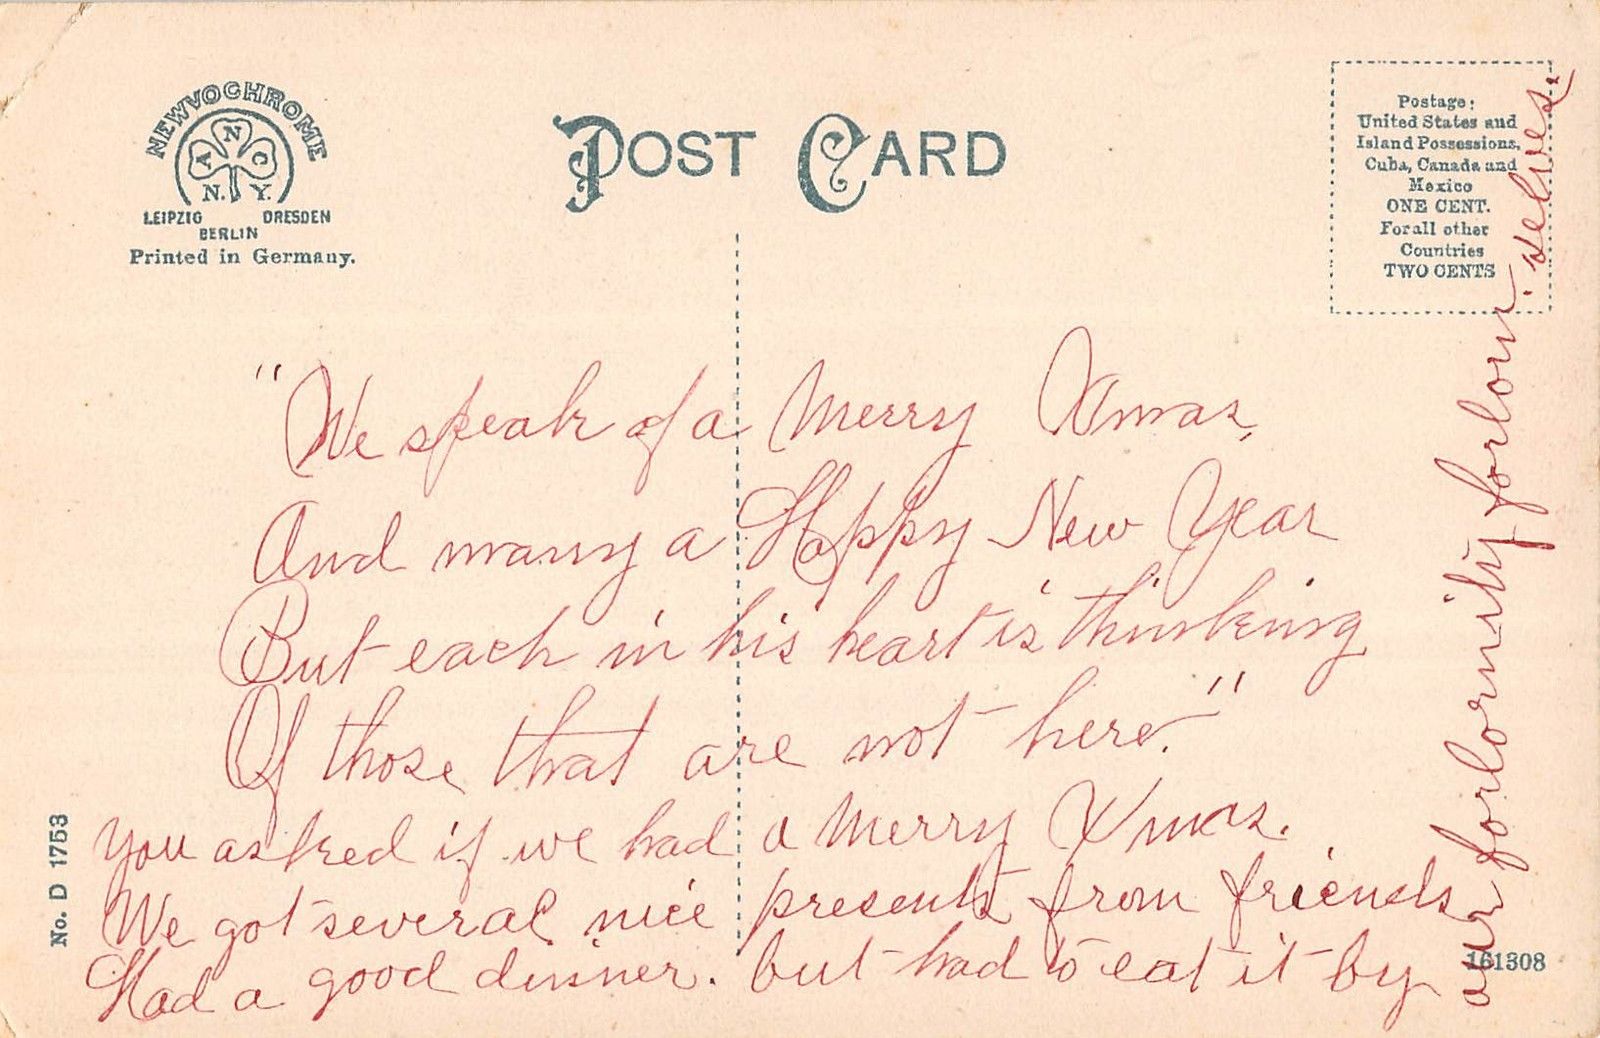 NEWVOCHROME
A N C
N. Y.
LEIPZIG DRESDEN
BERLIN
Printed in Germany.
POST CARD
Postage:
United States and
Island Possessions,
Cuba, Canada and
Mexico
ONE CENT.
For all other
Countries
TWO CENTS
"We speak of a Merry Xmas,
And many a Happy New Year
But each in his heart is thinking
Of those that are not here."
You asked if we had a Merry Xmas.
We got several nice presents from friends
Had a good dinner. but had to eat it by
our forlornity forlorn selves.
No. D 1753
161308